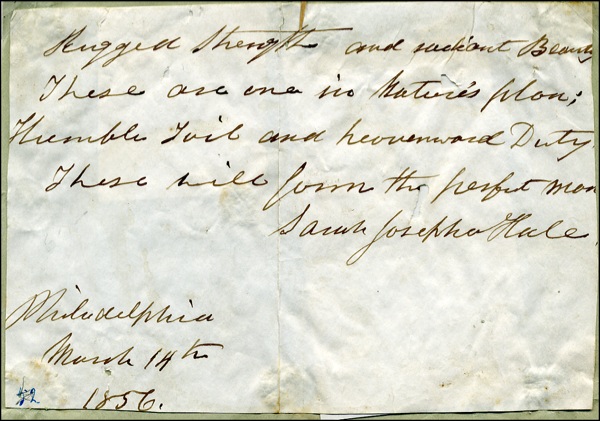 Rugged Strength and radiant Beauty
These are one in Nature's plan;
Humble Toil and heavenward Duty,
These will form the perfect man
Sarah Josepha Hale.
Philadelphia
March 14th
1856.